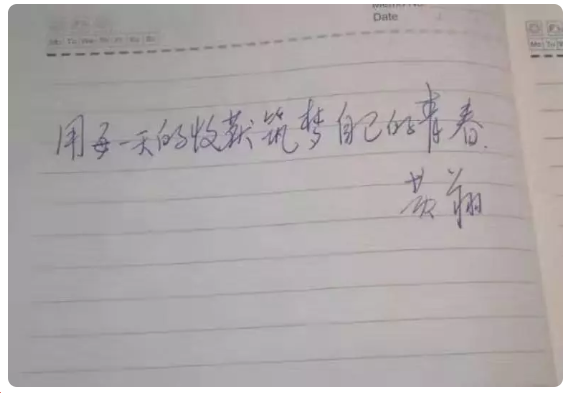 Date
Mo Tu We Th Fr Sa Su
Mo Tu
用每一天的收获筑梦自己的青春.
黄翔